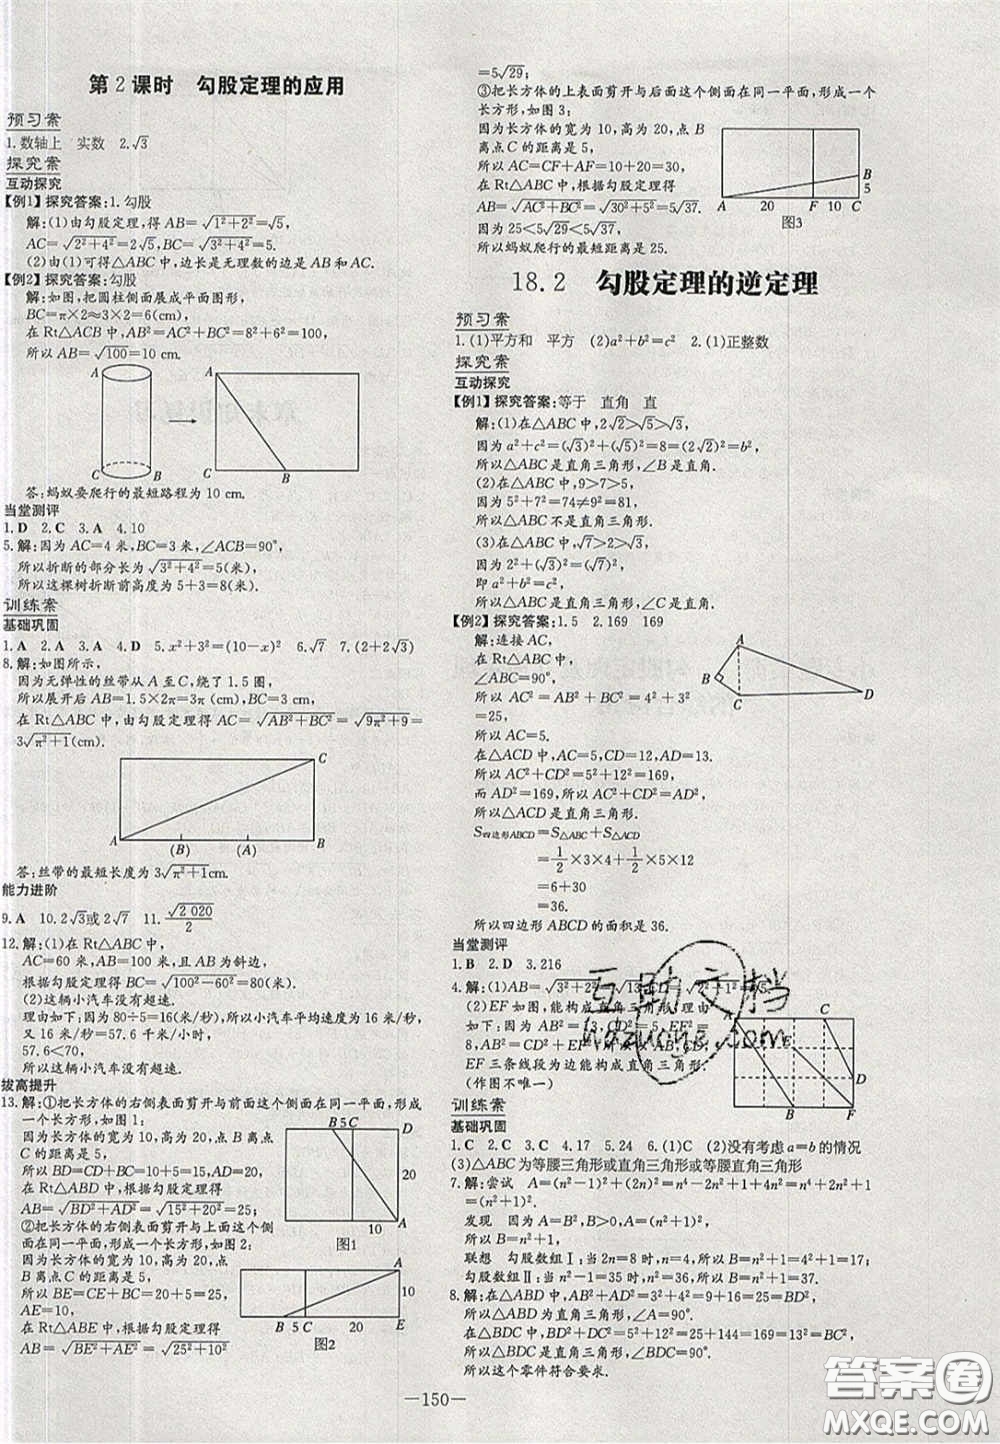 第2课时 勾股定理的应用
预习案
1.数轴上 实数 2.√3
探究案
互动探究
【例1】探究答案:1.勾股
解:(1)由勾股定理,得AB=√(1²+2²)=√5,
AC=√(2²+4²)=2√5,BC=√(3²+4²)=5.
(2)由(1)可得△ABC中,边长是无理数的边是AB和AC.
【例2】探究答案:勾股
解:如图,把圆柱侧面展成平面图形,
BC=π×2≈3×2=6(cm),
在Rt△ACB中,AB²=AC²+BC²=8²+6²=100,
所以AB=√100=10 cm.
A
C
B
A
C
B
答:蚂蚁要爬行的最短路程为10 cm.
当堂测评
1.D 2.C 3.A 4.10
5.解:因为AC=4米,BC=3米,∠ACB=90°,
所以折断的部分长为√(3²+4²)=5(米),
所以这棵树折断前高度为5+3=8(米).
训练案
基础巩固
1.A 2.A 3.A 4.D 5.x²+3²=(10-x)² 6.√7 7.(2+2√3)
8.解:如图所示,
因为无弹性的丝带从A至C,绕了1.5圈,
所以展开后AB=1.5×2π=3π(cm),BC=3 cm,
在Rt△ABC中,由勾股定理得AC=√(AB²+BC²)=√(9π²+9)=
3√(π²+1)(cm).
C
A (B) (A) B
答:丝带的最短长度为3√(π²+1)cm.
能力进阶
9.A 10.2√3或2√7 11.√2 020/2
12.解:(1)在Rt△ABC中,
AC=60米,AB=100米,且AB为斜边,
根据勾股定理得BC=√(100²-60²)=80(米).
(2)这辆小汽车没有超速.
理由如下:因为80÷5=16(米/秒),所以小汽车平均速度为16米/秒,
又16米/秒=57.6千米/小时,
57.6<70,
所以这辆小汽车没有超速.
拔高提升
13.解:①把长方体的右侧表面剪开与前面这个侧面在同一平面,形成
一个长方形,如图1:
因为长方体的宽为10,高为20,点B离点
C的距离是5,
所以BD=CD+BC=10+5=15,AD=20,
在Rt△ABD中,根据勾股定理得
AB=√(BD²+AD²)=√(15²+20²)=25;
②把长方体的右侧表面剪开与上面这个侧
面在同一平面,形成一个长方形,如图2:
因为长方体的宽为10,高为20,
点B离点C的距离是5,
所以BE=CE+BC=20+5=25,
AE=10,
在Rt△ABE中,根据勾股定理得
AB=√(BE²+AE²)=√(25²+10²)
B 5 C D
20
10 A
图1
A
10
B 5 C 20 E
图2
=5√29;
③把长方体的上表面剪开与后面这个侧面在同一平面,形成一个
长方形,如图3:
因为长方体的宽为10,高为20,点B
离点C的距离是5,
所以AC=CF+AF=10+20=30,
在Rt△ABC中,根据勾股定理得
AB=√(AC²+BC²)=√(30²+5²)=5√37,
因为25<5√29<5√37,
所以蚂蚁爬行的最短距离是25.
B
5
A 20 F 10 C
图3
18.2 勾股定理的逆定理
预习案
1.(1)平方和 平方 (2)a²+b²=c² 2.(1)正整数
探究案
互动探究
【例1】探究答案:等于 直角 直
解:(1)在△ABC中,2√2>√5>√3,
因为a²+c²=(√3)²+(√5)²=8=(2√2)²=b²,
所以△ABC是直角三角形,∠B是直角.
(2)在△ABC中,9>7>5,
因为5²+7²=74≠9²=81,
所以△ABC不是直角三角形.
(3)在△ABC中,√7>2>√3,
因为(√3)²+2²=(√7)²,
即a²+b²=c²,
所以△ABC是直角三角形,∠C是直角.
【例2】探究答案:1.5 2.169 169
解:连接AC,
在△ABC中,AB=4,BC=3,
∠ABC=90°,
所以AC²=AB²+BC²=4²+3²
=25,
所以AC=5.
在△ACD中,AC=5,CD=12,AD=13.
所以AC²+CD²=5²+12²=169,
而AD²=169,所以AC²+CD²=AD²,
所以△ACD是直角三角形.
A
B
C
D
S四边形ABCD=S△ABC+S△ACD
=1/2×3×4+1/2×5×12
=6+30
=36.
所以四边形ABCD的面积是36.
当堂测评
1.B 2.D 3.216
4.解:(1)AB=√(3²+2²)=√13,CD=√(2²+1²)=√5.
(2)EF如图,能构成直角三角形,理由
如下:因为AB²=13,CD²=5,EF²=
8,AB²=CD²+EF²,所以以AB,CD,
EF三条线段为边能构成直角三角形.
(作图不唯一)
C
A
E
D
B
F
训练案
基础巩固
1.C 2.D 3.C 4.17 5.24 6.(1)C (2)没有考虑a=b的情况
(3)△ABC为等腰三角形或直角三角形或等腰直角三角形
7.解:尝试 A=(n²-1)²+(2n)²=n⁴-2n²+1+4n²=n⁴+2n²+1
=(n²+1)²,
发现 因为A=B²,B>0,所以B=(n²+1),
联想 勾股数组Ⅰ:当2n=8时,n=4.所以B=n²+1=4²+1=17;
勾股数组Ⅱ:当n²-1=35时,B=n²+1=37.
8.解:在△ABD中,因为AB²+AD²=3²+4²=9+16=25=BD²,
所以△ABD为直角三角形,∠A=90°.
在△BDC中,BD²+DC²=5²+12²=25+144=169=13²=BC²,
所以△BDC是直角三角形,∠BDC=90°.
所以这个零件符合要求.
—150—
互助文档
hdzuoye.com
答案圈
MXQE.COM